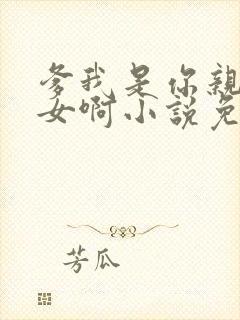 爹我是你亲
女啊小说免
芳瓜